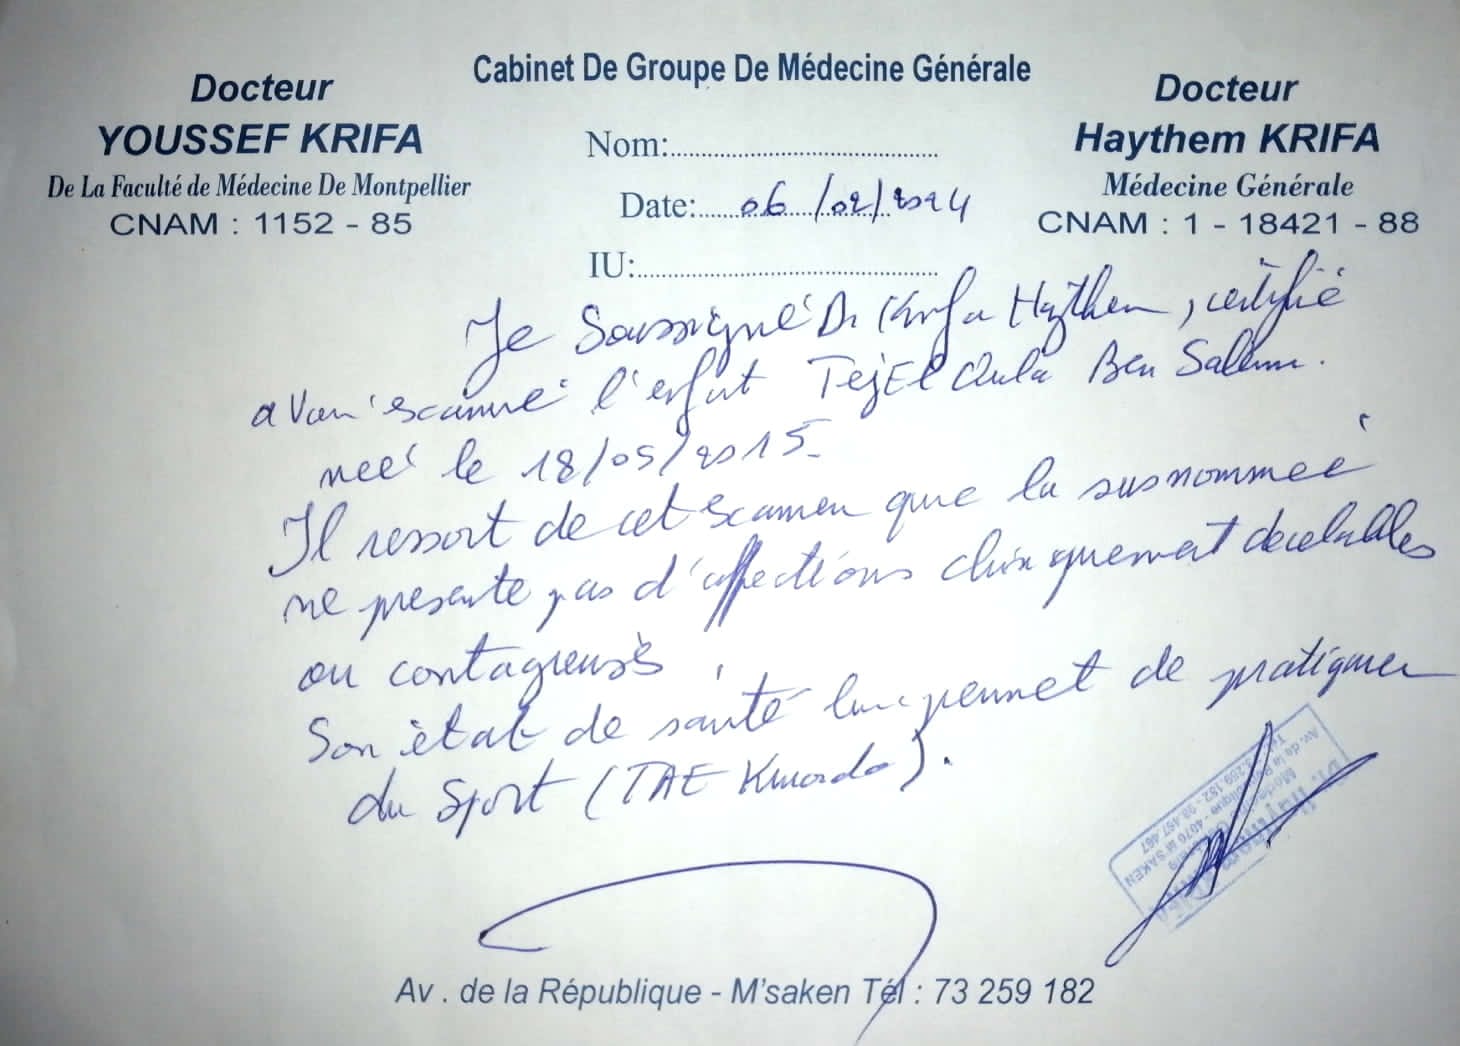 Cabinet De Groupe De Médecine Générale
Docteur
YOUSSEF KRIFA
De La Faculté de Médecine De Montpellier
CNAM : 1152 - 85
Docteur
Haythem KRIFA
Médecine Générale
CNAM : 1 - 18421 - 88
Nom:
Date: 06/02/2024
IU:
Je Soussigné Dr Krifa Haythem, certifié
avoir examiné l'enfant TejEl Oula Ben Salem.
née le 18/05/2015.
Il ressort de cet examen que la susnommée
ne présente pas d'affections cliniquement décelables
ou contagieuses,
Son état de santé lui permet de pratiquer
du Sport (TAE Kwondo).
Av. de la République - 4070 M'SAKEN
Av . de la République - M'saken Tél : 73 259 182